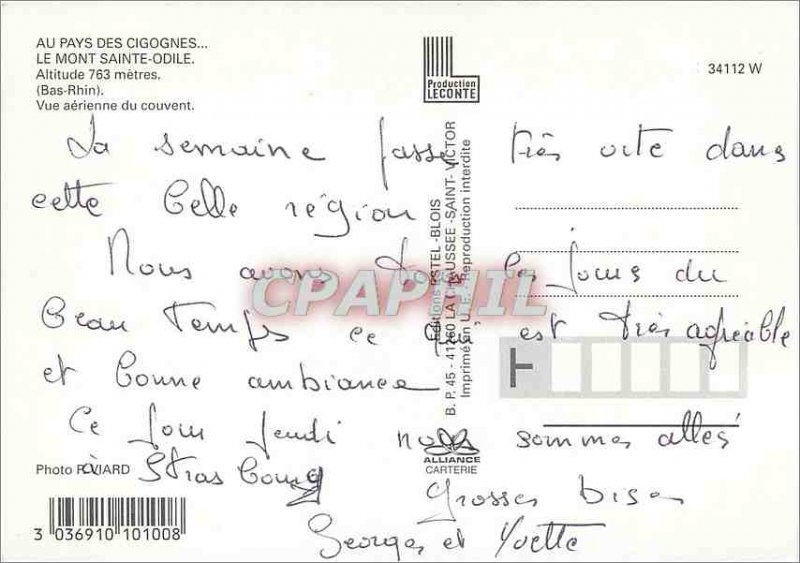 AU PAYS DES CIGOGNES...
LE MONT SAINTE-ODILE.
Altitude 763 mètres.
(Bas-Rhin).
Vue aérienne du couvent.
Production
LECONTE
34112 W
La semaine passe très vite dans
cette belle région
Nous avons tous les jours du
beau temps ce qui est très agréable
et bonne ambiance
Ce jour jeudi nous sommes allés
à Strasbourg
Grosses bises
Georges et Yvette
Editions ESTEL-BLOIS
B.P. 45 - 41260 LA CHAUSSEE-SAINT-VICTOR
Imprimé en U.E. - Reproduction interdite
ALLIANCE
CARTERIE
Photo P. VIARD
3 036910 101008
CPAPHIL